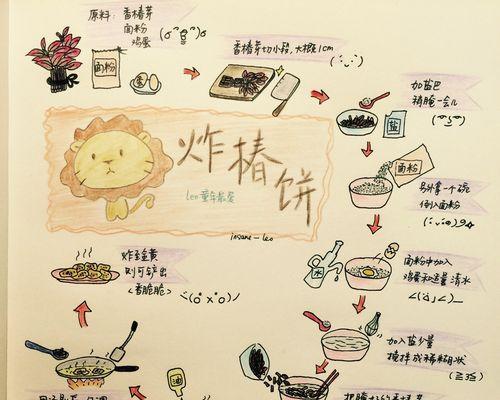 原料：香椿芽
面粉
鸡蛋
面粉
香椿芽切小段，大概1cm
加盐巴
稍腌一会儿
盐
面粉
另外拿一个碗
倒入面粉
炸椿饼
leo童年最爱
insane-leo
面粉中加入
鸡蛋和适量清水
水
炸至金黄
则可铲出
（香脆脆）
加入盐少量
搅拌成稀糊状
油